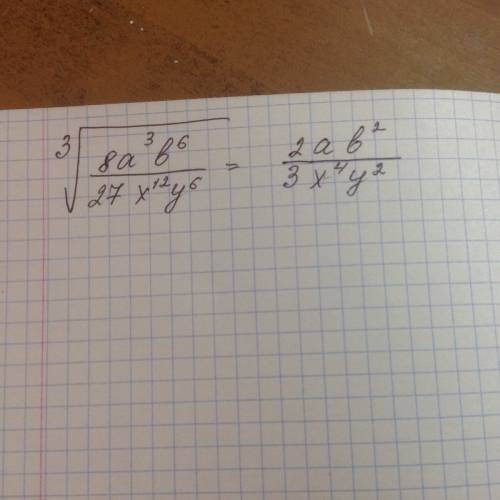 ∛(8a³b⁶ / 27x¹²y⁶) = 2ab² / 3x⁴y²